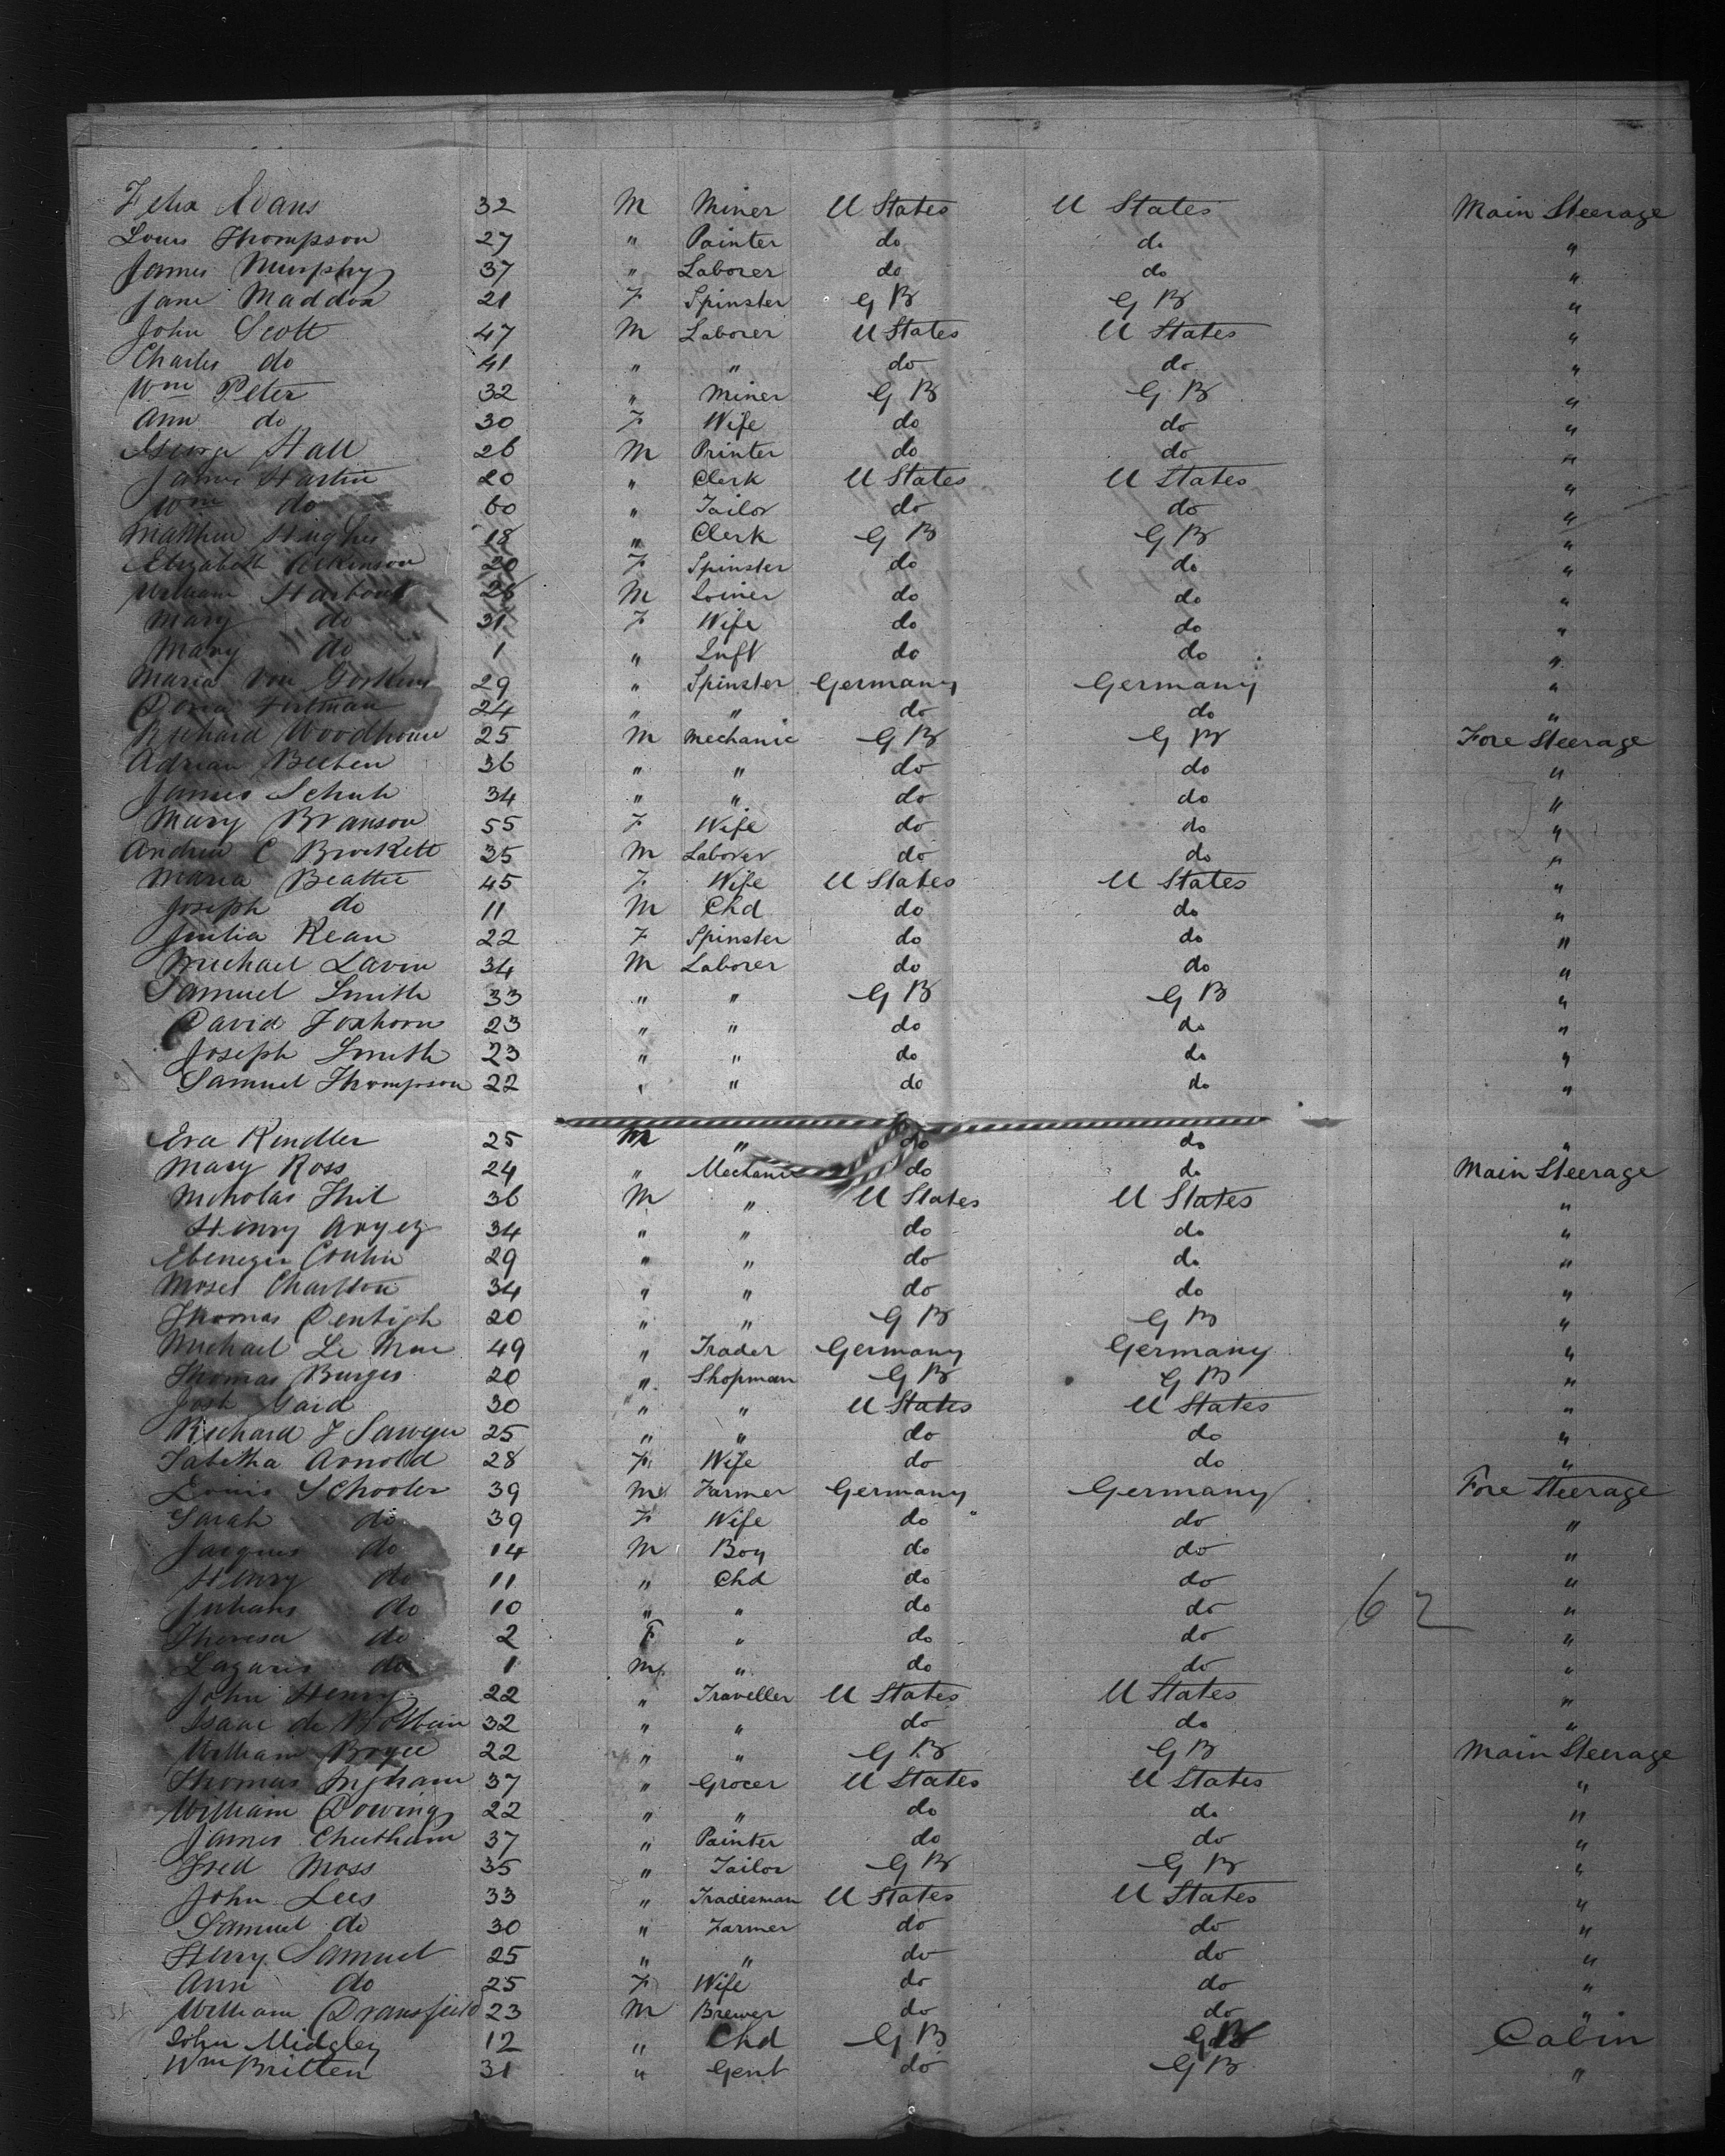 Felix Evans 32 M Miner U States U States Main Steerage
Louis Thompson 27 " Painter do do "
James Murphy 37 " Laborer do do "
Jane Maddox 21 F Spinster G B G B "
John Scott 47 M Laborer U States U States "
Charles do 41 " " do do "
Wm Peter 32 " Miner G B G B "
Ann do 30 F Wife do do "
George Hall 26 M Printer do do "
James 20 " Clerk U States U States "
Wm do 60 " Tailor do do "
Matthew Hughes 18 " Clerk G B G B "
Elizabeth 20 F Spinster do do "
William 26 M Joiner do do "
Mary do 31 F Wife do do "
Mary do 1 " Inft do do "
Maria Von 29 " Spinster Germany Germany "
24 " " do do "
Richard Woodhouse 25 M Mechanic G B G B Fore Steerage
Adrian 36 " " do do "
James 34 " " do do "
Mary Branson 55 F Wife do do "
Andrew C Brockett 35 M Laborer do do "
Maria Beattie 45 F Wife U States U States "
Joseph do 11 M Chd do do "
Julia Kean 22 F Spinster do do "
Michael Lavin 34 M Laborer do do "
Samuel Smith 33 " " G B G B "
David Foxhorn 23 " " do do "
Joseph Smith 23 " " do do "
Samuel Thompson 22 " " do do "
Eva Kindler 25 M " do do "
Mary Ross 24 " Mechanic do do Main Steerage
Nicholas 36 M " U States U States "
Henry 34 " " do do "
Ebenezer 29 " " do do "
Moses Charlton 34 " " do do "
Thomas Denbigh 20 " " G B G B "
Michael Le 49 " Trader Germany Germany "
Thomas Burges 20 " Shopman G B G B "
Josh 30 " " U States U States "
Richard J Sawyer 25 " " do do "
Tabitha Arnold 28 F Wife do do "
Louis Schooler 39 M Farmer Germany Germany Fore Steerage
Sarah do 39 F Wife do do "
Jacques do 14 M Boy do do "
Henry do 11 " Chd do do "
do 10 " " do do "
62
Theresa do 2 F " do do "
Lazaris do 1 M " do do "
John Henry 22 " Traveller U States U States "
Isaac de 32 " " do do "
William Boyce 22 " " G B G B Main Steerage
Thomas Ingham 37 " Grocer U States U States "
William Dowing 22 " " do do "
James Cheetham 37 " Painter do do "
Fred Moss 35 " Tailor G B G B "
John Lees 33 " Tradesman U States U States "
Samuel do 30 " Farmer do do "
Henry Samuel 25 " " do do "
Ann do 25 F Wife do do "
William Dransfield 23 M Brewer do do "
John Midgley 12 " Chd G B G B Cabin
Wm Britten 31 " Gent do G B "